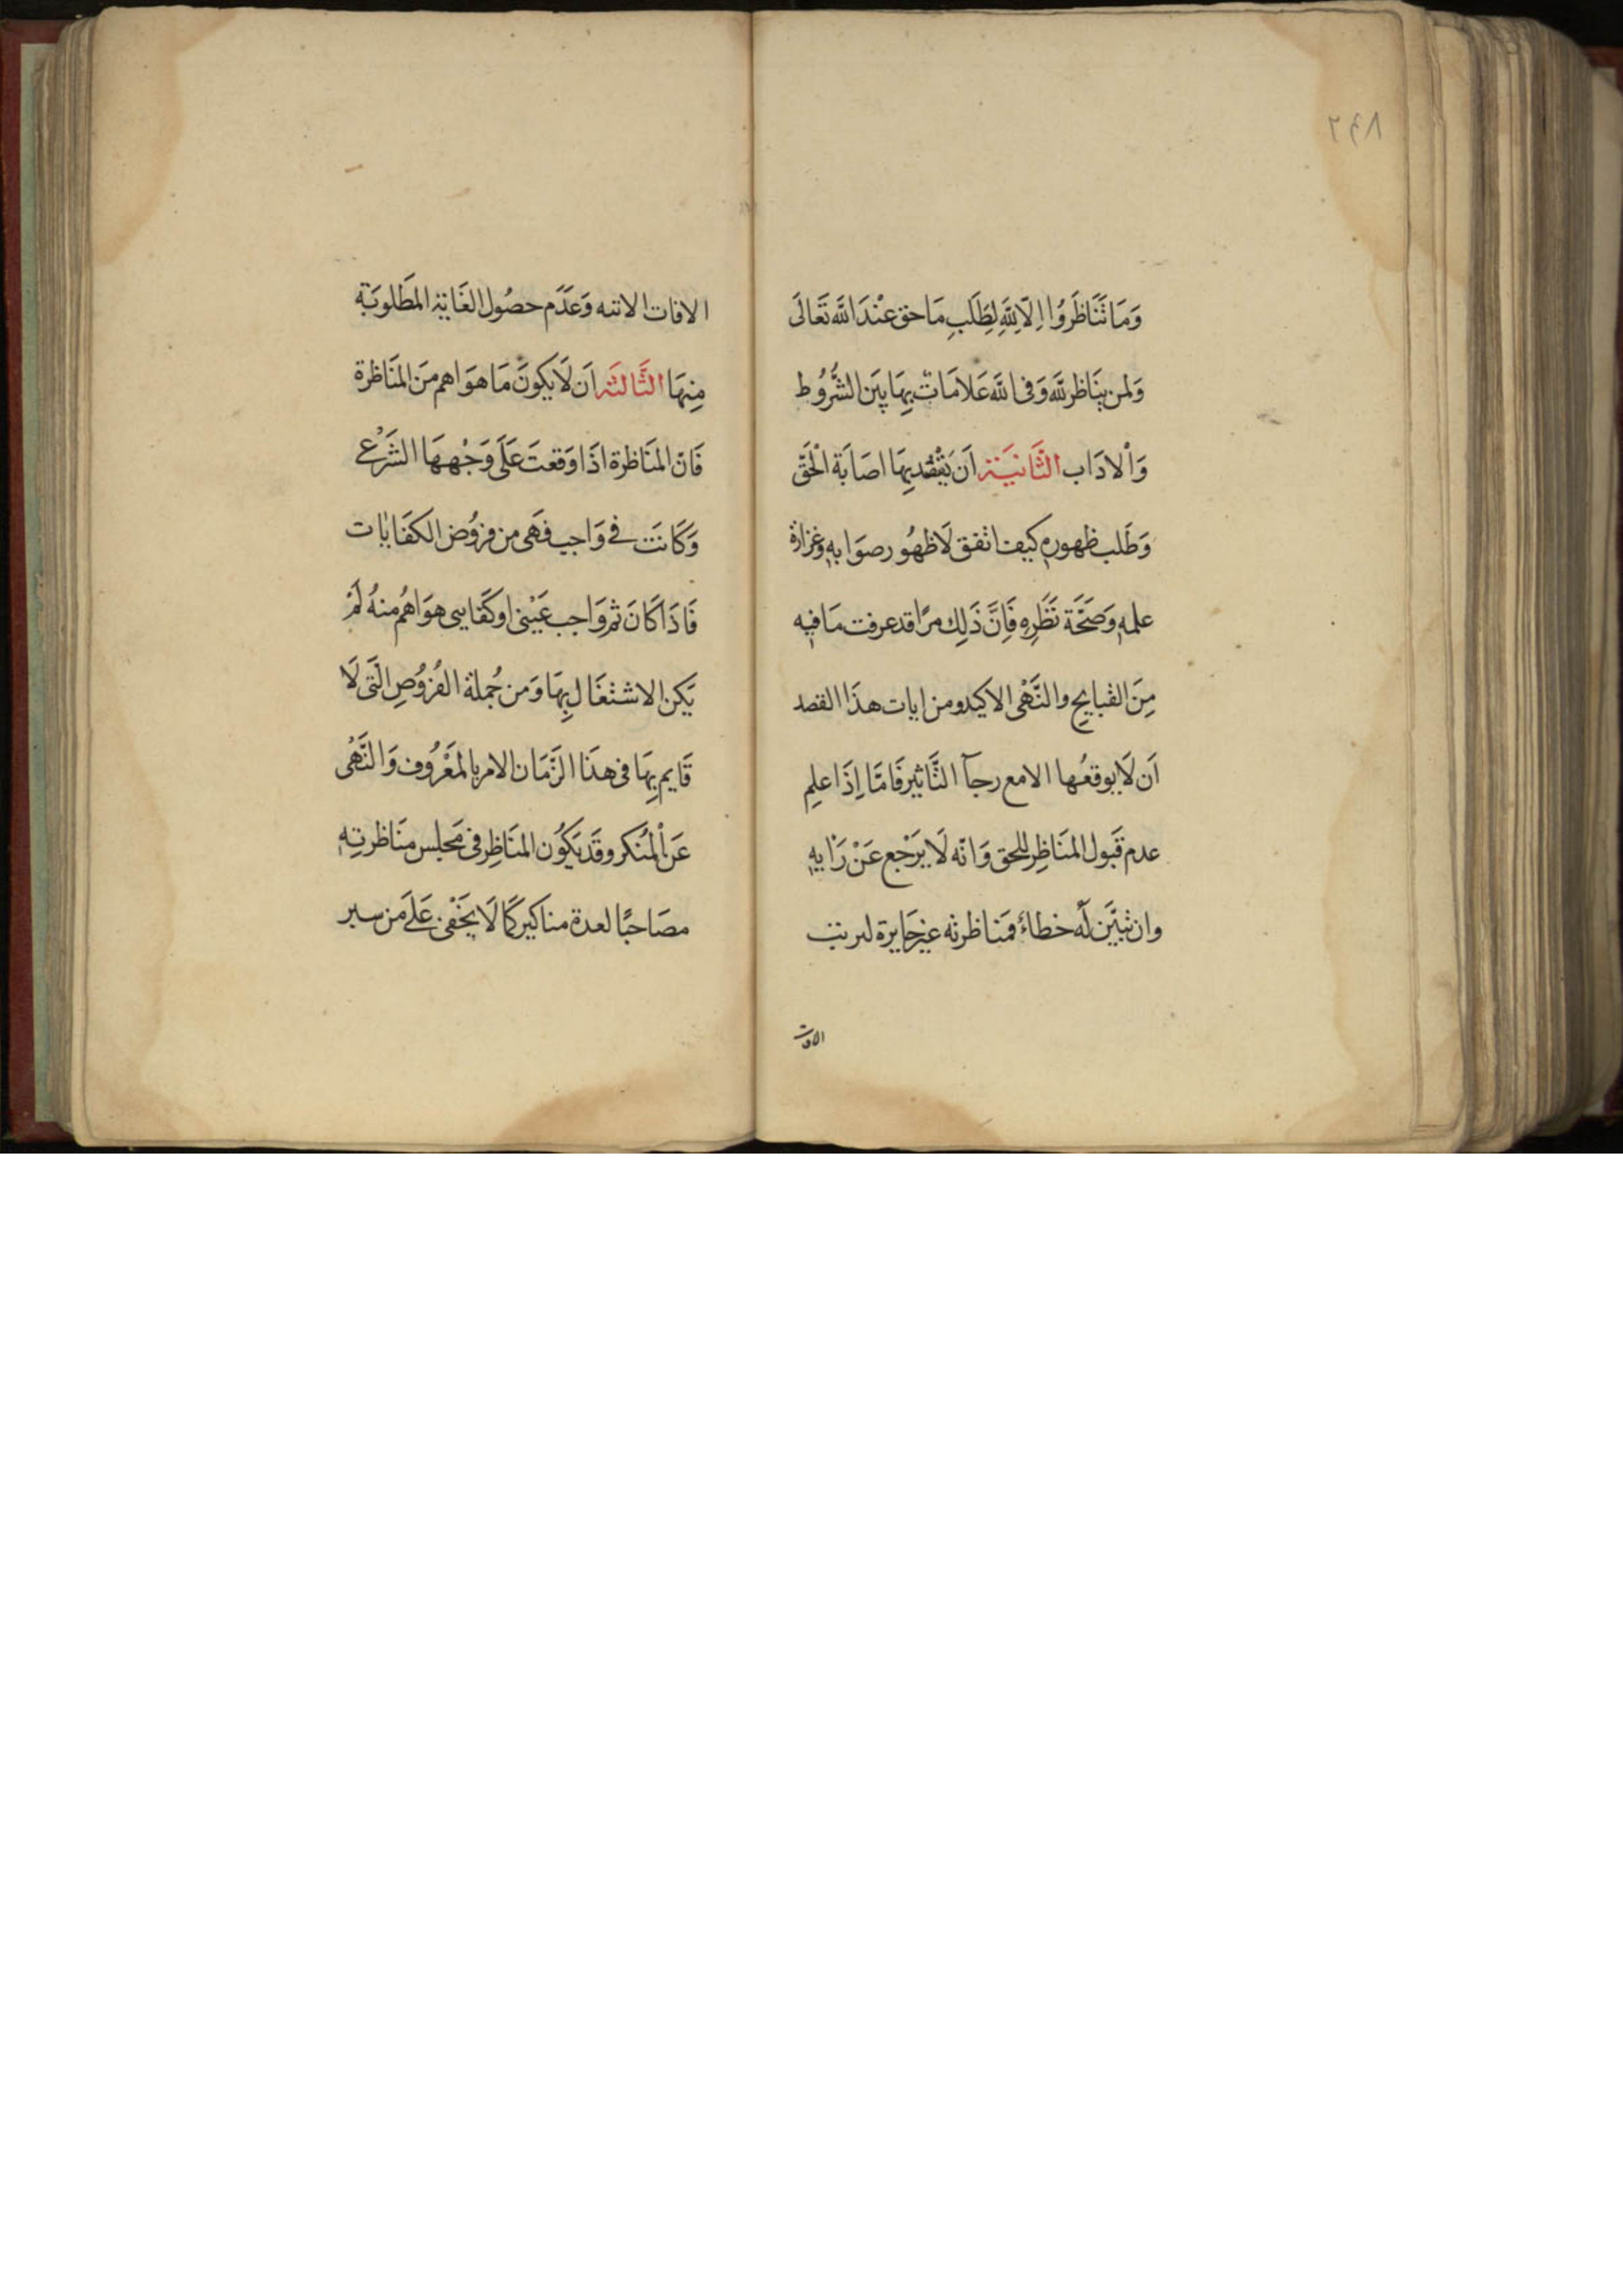 ٢٤٨
وَمَا تَنَاظَرُوا اِلّا لِلّهِ لِطَلَبِ مَا حق عنْدَ اللّه تَعَالَى
وَلمن يُنَاظر للّه وَفى اللّه عَلامَات بِهَا يَبَين الشُّرُوط
وَاْلادَاب الثَّانيَة اَن يَقْصد بِهَا اصَابَة الْحَقّ
وَطَلب ظهوره كيف اتفق لَا ظهُور صوَابه وغزارة
علمه وَصَحَّة نَظَرِهِ فَاِنَّ ذَلِك مرًا قد عرفت مَا فيه
مِنَ القبايح والنَّهْى الاكيد ومن ايات هذَا القصد
اَن لَا يوقعُها الا مع رجآ التَّاثير فَامَّا اِذَا علم
عدم قَبول المنَاظِر للحق وَانّه لَا يَرْجع عَنْ رَايه
وان تبَيَّن لَه خطاءُ فمَنَاظرته غير جَايرة لترتب
الافات
الافات الاتيه وَعَدَم حصُول الغَاية المَطَلوبَة
مِنهَا الثَّالثَه اَن لَا يكونَ مَا هوَ اهم مِنَ المنَاظرة
فَانّ المنَاظرة اذَا وَقعتَ عَلَى وَجْههَا الشَّرْعى
وَكَانَت فى وَاجب فهَى من فروُض الكفَايَات
فَاذَا كَانَ ثم وَاجب عَيْنى او كَفايى هوَ اهُم منهُ لَمْ
يَكن الاشتغَال بِهَا وَمن جُملة الفُرُوُض الَّتى لَا
قَايم بِهَا فى هذَا الزَّمَان الامر بالمَعْرُوف وَالنَّهْى
عَن اْلمُنكر وقَد يَكُون المنَاظِر فى مَجلس منَاظرته
مصَاحبًا لعدة مناكير كمَا لَا يَخَفْى عَلَى مَن سبر